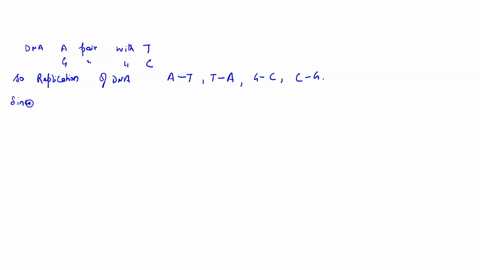 DNA A pair with T
G " " C
so Replication of DNA A-T, T-A, G-C, C-G.